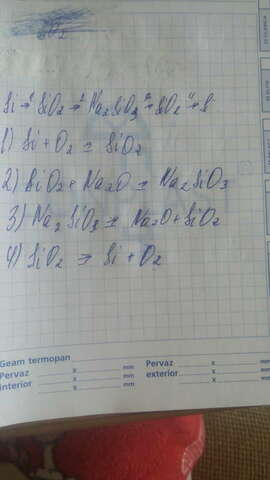 SiO₂
Si →¹ SiO₂ →² Na₂SiO₃ →³ SiO₂ →⁴ Si
1) Si + O₂ = SiO₂
2) SiO₂ + Na₂O = Na₂SiO₃
3) Na₂SiO₃ = Na₂O + SiO₂
4) SiO₂ = Si + O₂
Geam termopan
x mm Pervaz x mm
Pervaz x mm exterior x mm
interior x mm x mm